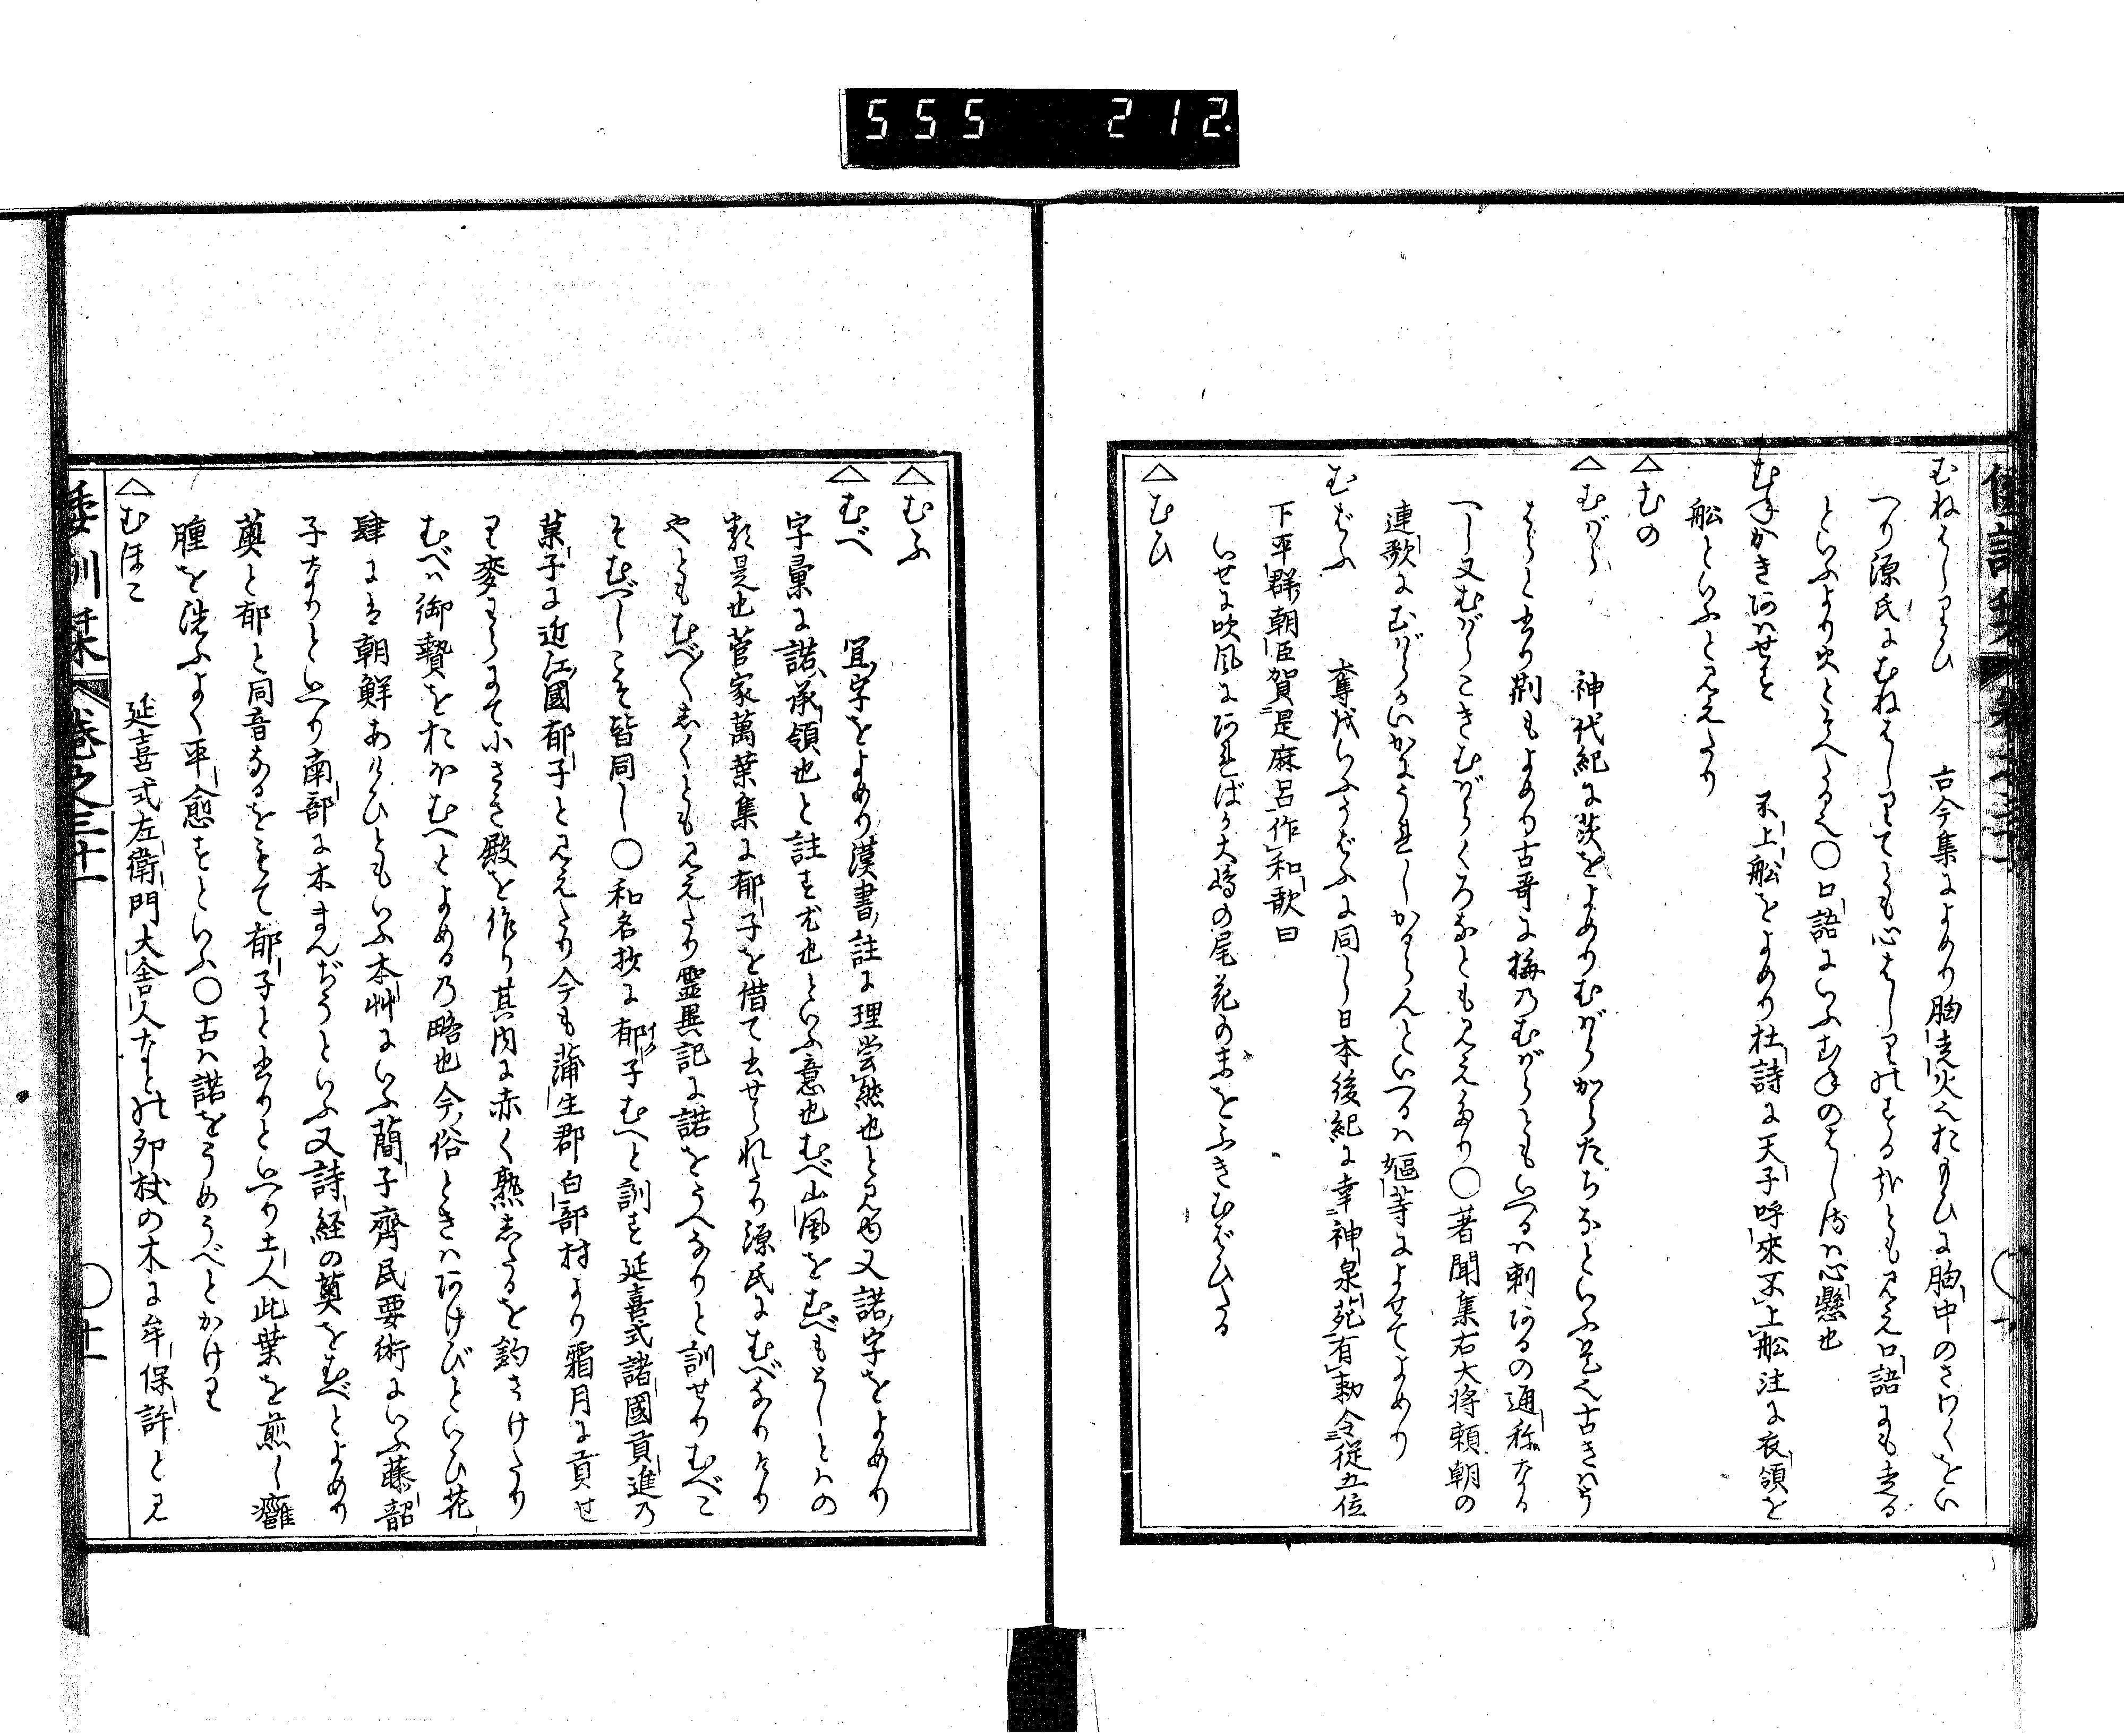 555 212.
むねはしりひ 古今集によめり胸走火也おもひに胸中のさわくをい
へり源氏にむねはしりても心はしりのするなともみえ口語にも走る
といふより火とそへたる也〇口語にいふむねのはしるハ心懸也
むねかきあハせす 不上船をよめり杜詩に天子呼來不上船注に衣領を
船といふと見えたり
△むの
△むばら 神代紀に茨をよめりむばらからたちなといふ是也古きハう
ばらと書り荊もよめり古哥に梅のむばらともいへるハ刺あるの通称なる
へし又むばらこきむばらくろなともみえたり〇著聞集右大将頼朝の
連歌にむばらかいかにうれしかるらんといへるハ嫗等によせてよめり
むばふ 奪戈いふうばふに同し日本後紀に幸神泉苑有勅令從五位
下平群朝臣賀是麻呂作和歌曰
いせに吹風にあれば大嶋の尾花の末をふきむばひたる
△むひ
△むふ
△むべ 宜字をよめり漢書註に理当然也と見ゆ又諾字をよめり
字彙に諾承領也と註す尤也といふ意也むべ山風をむべもとしとハの
類是也菅家萬葉集に郁子を借て書せられたり源氏にむべなりけり
やともむべ〳〵しくとも見えたり靈異記に諾をうへなりと訓せりむべこ
そむべしこそ皆同し〇和名抄に郁子むへと訓す延喜式諸國貢進乃
菓子に近江國郁子と見えたり今も蒲生郡白部村より霜月に貢せ
り麥わらにて小さき殿を作り其内に赤く熟したるを釣さけたり
むべハ御贄をおほむへとよめる乃略也今俗ときハあけびといひ花
肆にハ朝鮮あけひともいふ本艸にいふ蕳子齊民要術にいふ藤韶
子なりといへり南部に木まんぢうといふ又詩経の薁をむべとよめり
薁と郁と同音なるをもて郁子と書りといへり土人此葉を煎し癰
腫を洗ふよく平愈すといふ〇古ハ諾をうめうべとかけり
△むほこ 延喜式左衛門大舎人なとの卯杖の木に牟保許と見
倭訓栞 巻之三十一 〇十一